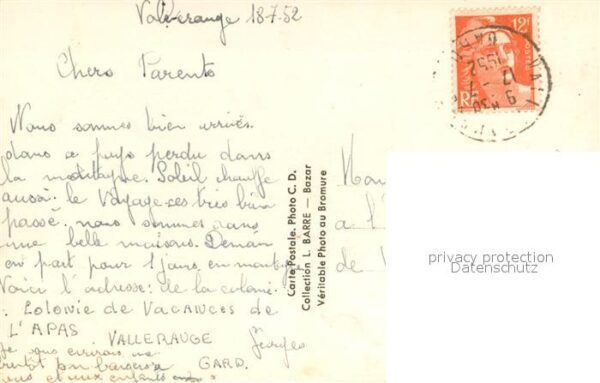 Valleraugue 18.7.52
Chers Parents
Nous sommes bien arrivés
dans ce pays perdu dans
la montagne. Soleil chauffe
aussi. le Voyage ces très bien
passé. nous sommes dans
une belle maisons. Demain
on part pour 1 jours en montag
Voici l'adresse: de la colonie.
Colonie de Vacances de
L'APAS
VALLERAUGE Georges
GARD.
Je vous écrirais
Carte Postale. Photo C. D.
Collection L. BARRE — Bazar
Véritable Photo au Bromure
12F
POSTES
RF
9 H30
17 - 7
1952
GARD
a l'
de V
privacy protection
Datenschutz